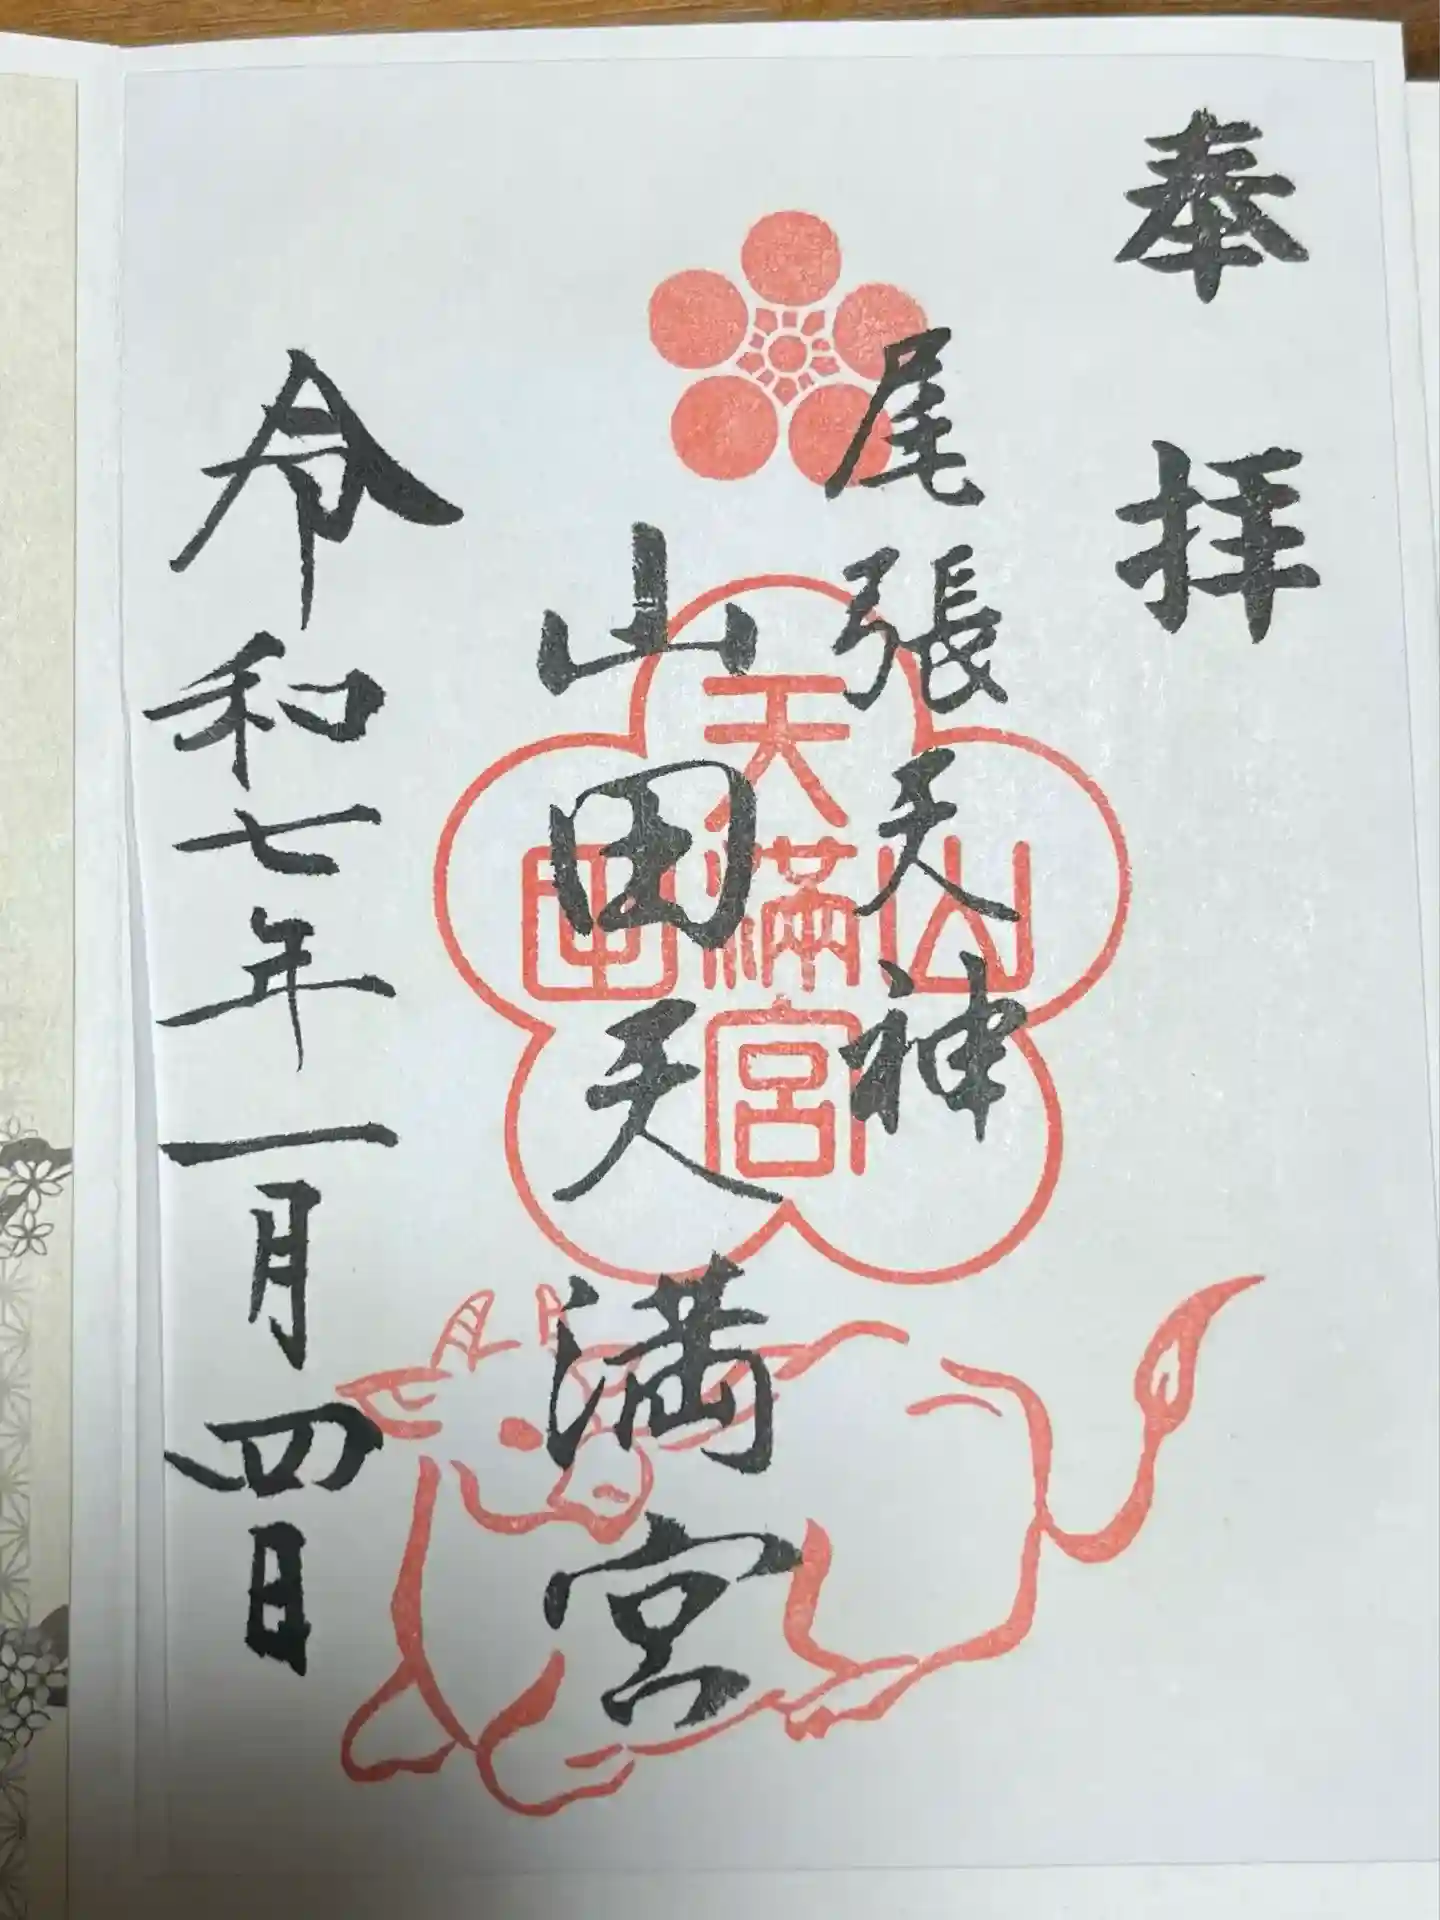 奉拝
尾張天神
山田天満宮
令和七年一月四日
天
山満田
宮